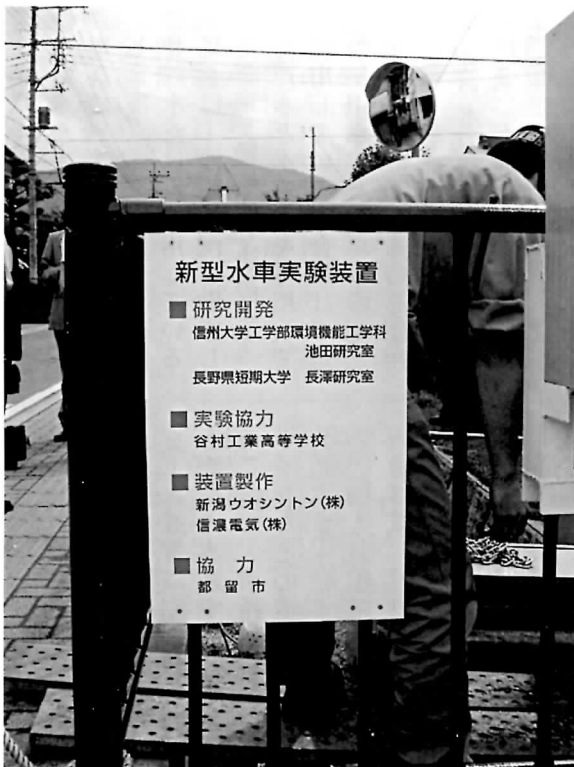 新型水車実験装置
■ 研究開発
信州大学工学部環境機能工学科
池田研究室
長野県短期大学 長澤研究室
■ 実験協力
谷村工業高等学校
■ 装置製作
新潟ウオシントン(株)
信濃電気(株)
■ 協 力
都 留 市